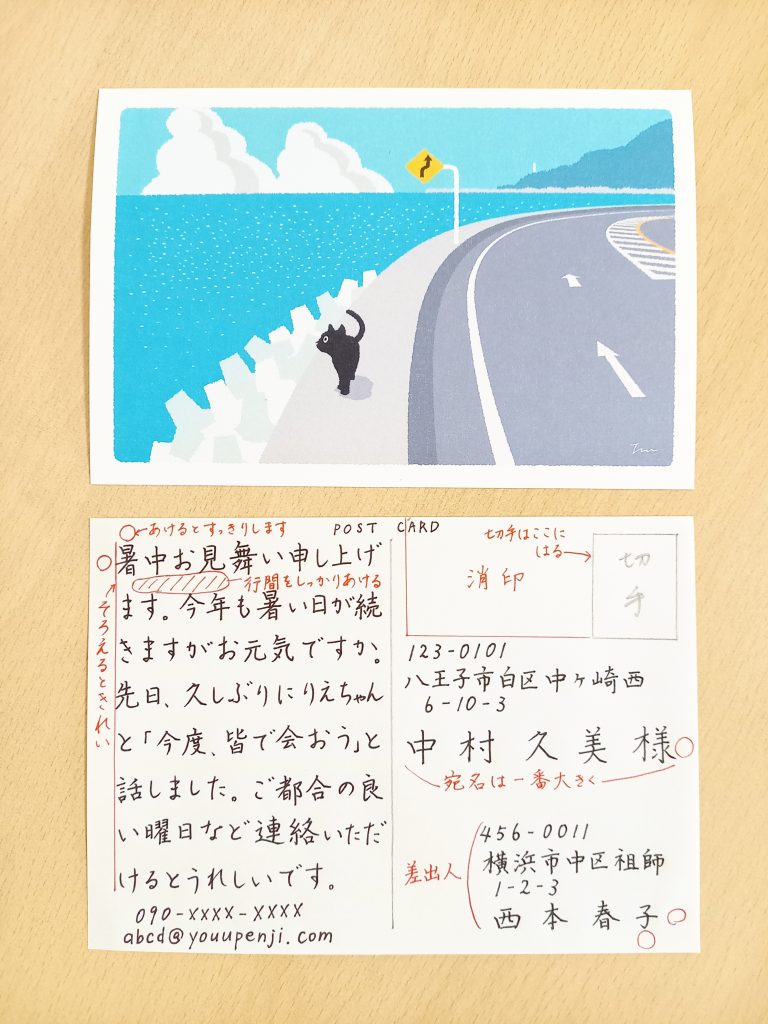 ○←あけるとすっきりします
POST CARD
暑中お見舞い申し上げ
行間をしっかりあける
ます。今年も暑い日が続
きますがお元気ですか。
先日、久しぶりにりえちゃん
と「今度、皆で会おう」と
話しました。ご都合の良
い曜日など連絡いただ
けるとうれしいです。
090-XXXX-XXXX
abcd@youupenji.com
そろえるときれい
切手はここに
はる→
消印
切手
123-0101
八王子市白区中ヶ崎西
6-10-3
中村久美様
宛名は一番大きく
差出人
456-0011
横浜市中区祖師
1-2-3
西本春子